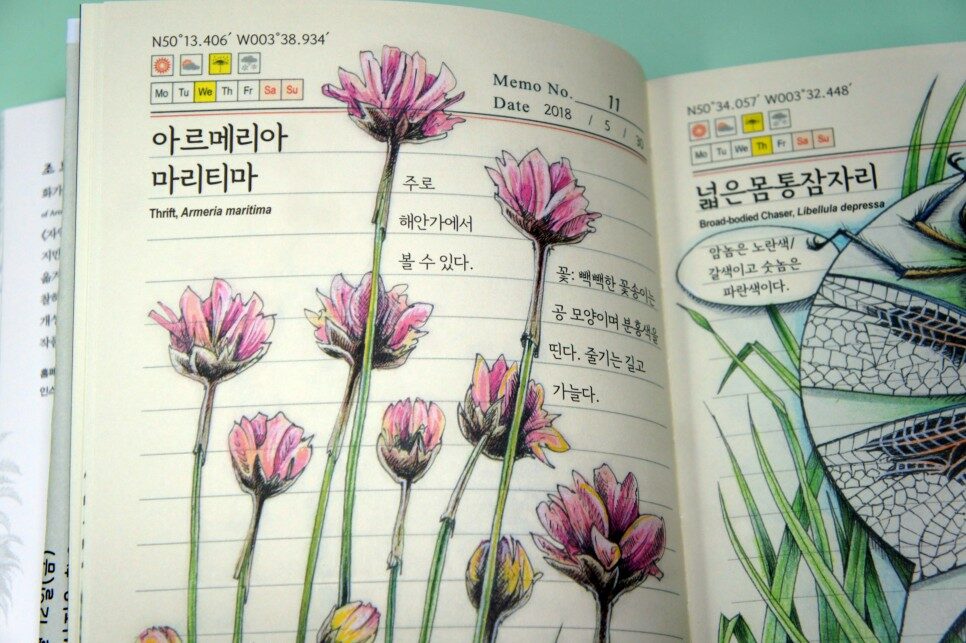 N50°13.406′ W003°38.934′
Mo Tu We Th Fr Sa Su
Memo No. 11
Date 2018 / 5 / 30
아르메리아
마리티마
Thrift, Armeria maritima
주로
해안가에서
볼 수 있다.
꽃: 빽빽한 꽃송이는
공 모양이며 분홍색을
띤다. 줄기는 길고
가늘다.
N50°34.057′ W003°32.448′
Mo Tu We Th Fr Sa Su
넓은몸통잠자리
Broad-bodied Chaser, Libellula depressa
암놈은 노란색/
갈색이고 숫놈은
파란색이다.